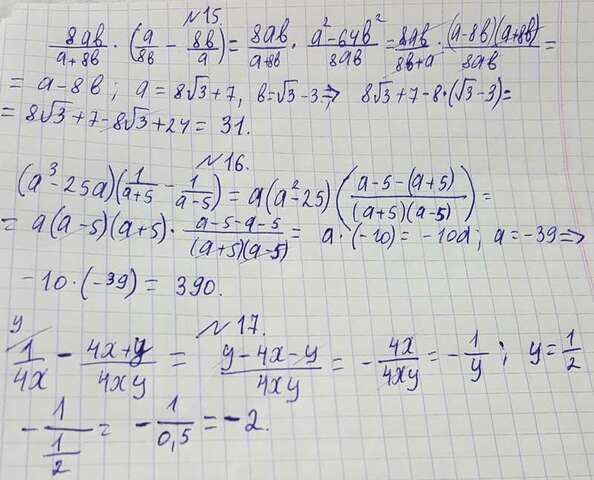 N15.
8ab/(a+8b) · (a/8b - 8b/a) = 8ab/(a+8b) · (a²-64b²)/8ab = 8ab/(8b+a) · (a-8b)(a+8b)/8ab =
= a-8b; a = 8√3+7, b=√3-3 => 8√3+7-8·(√3-3)=
= 8√3+7-8√3+24= 31.
N16.
(a³-25a)(1/(a+5) - 1/(a-5)) = a(a²-25)((a-5-(a+5))/((a+5)(a-5))) =
= a(a-5)(a+5)· (a-5-a-5)/((a+5)(a-5)) = a·(-10)= -10a; a=-39=>
-10·(-39)= 390.
N17.
y
1/4x - (4x+y)/4xy = (y-4x-y)/4xy = - 4x/4xy = - 1/y; y= 1/2
- 1/(1/2) = - 1/0,5 = -2.